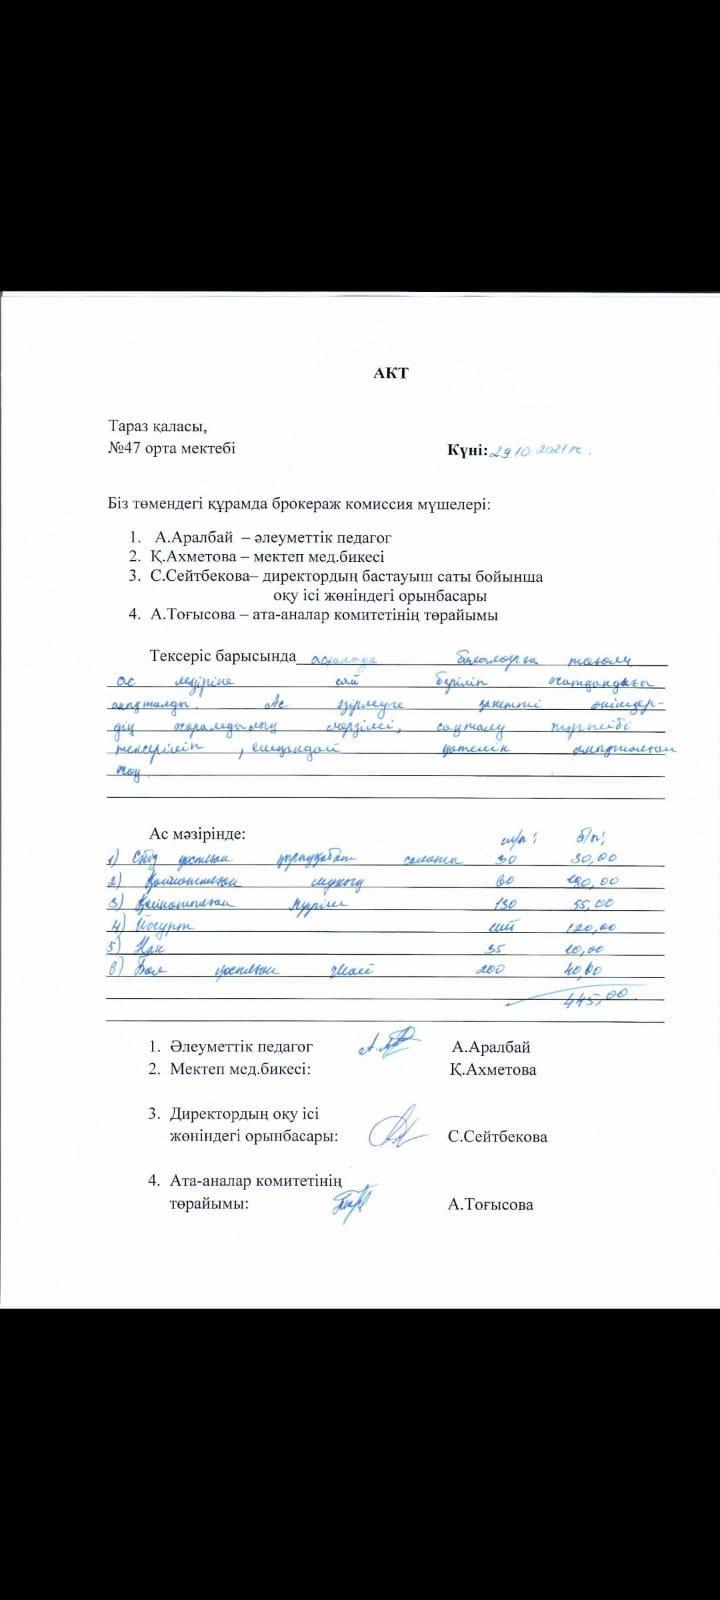 АКТ
Тараз қаласы,
№47 орта мектебі
Күні: 29.10.2021ж.
Біз төмендегі құрамда брокераж комиссия мүшелері:
1. А.Аралбай – әлеуметтік педагог
2. Қ.Ахметова – мектеп мед.бикесі
3. С.Сейтбекова– директордың бастауыш саты бойынша
оқу ісі жөніндегі орынбасары
4. А.Тоғысова – ата-аналар комитетінің төрайымы
Тексеріс барысында асханада балаларға
ас мәзіріне сай беріліп жатқандығы
анықталды. Ас әзірлеуге қажетті өнімдер-
дің жарамдылық мерзімі, сақталу тәртібі
тексеріліп, ешқандай қателік анықталған
жоқ.
Ас мәзірінде:
1) Сәбіз қосылған қырыққабат салаты 30 30,00
2) Қайнатылған 190,00
3) Қайнатылған күріш 130 55,00
4) Йогурт шт 120,00
5) Нан 35 10,00
6) Бал қосылған шай 200 40,00
445,00
1. Әлеуметтік педагог А.Аралбай
2. Мектеп мед.бикесі: Қ.Ахметова
3. Директордың оқу ісі
жөніндегі орынбасары: С.Сейтбекова
4. Ата-аналар комитетінің
төрайымы: А.Тоғысова